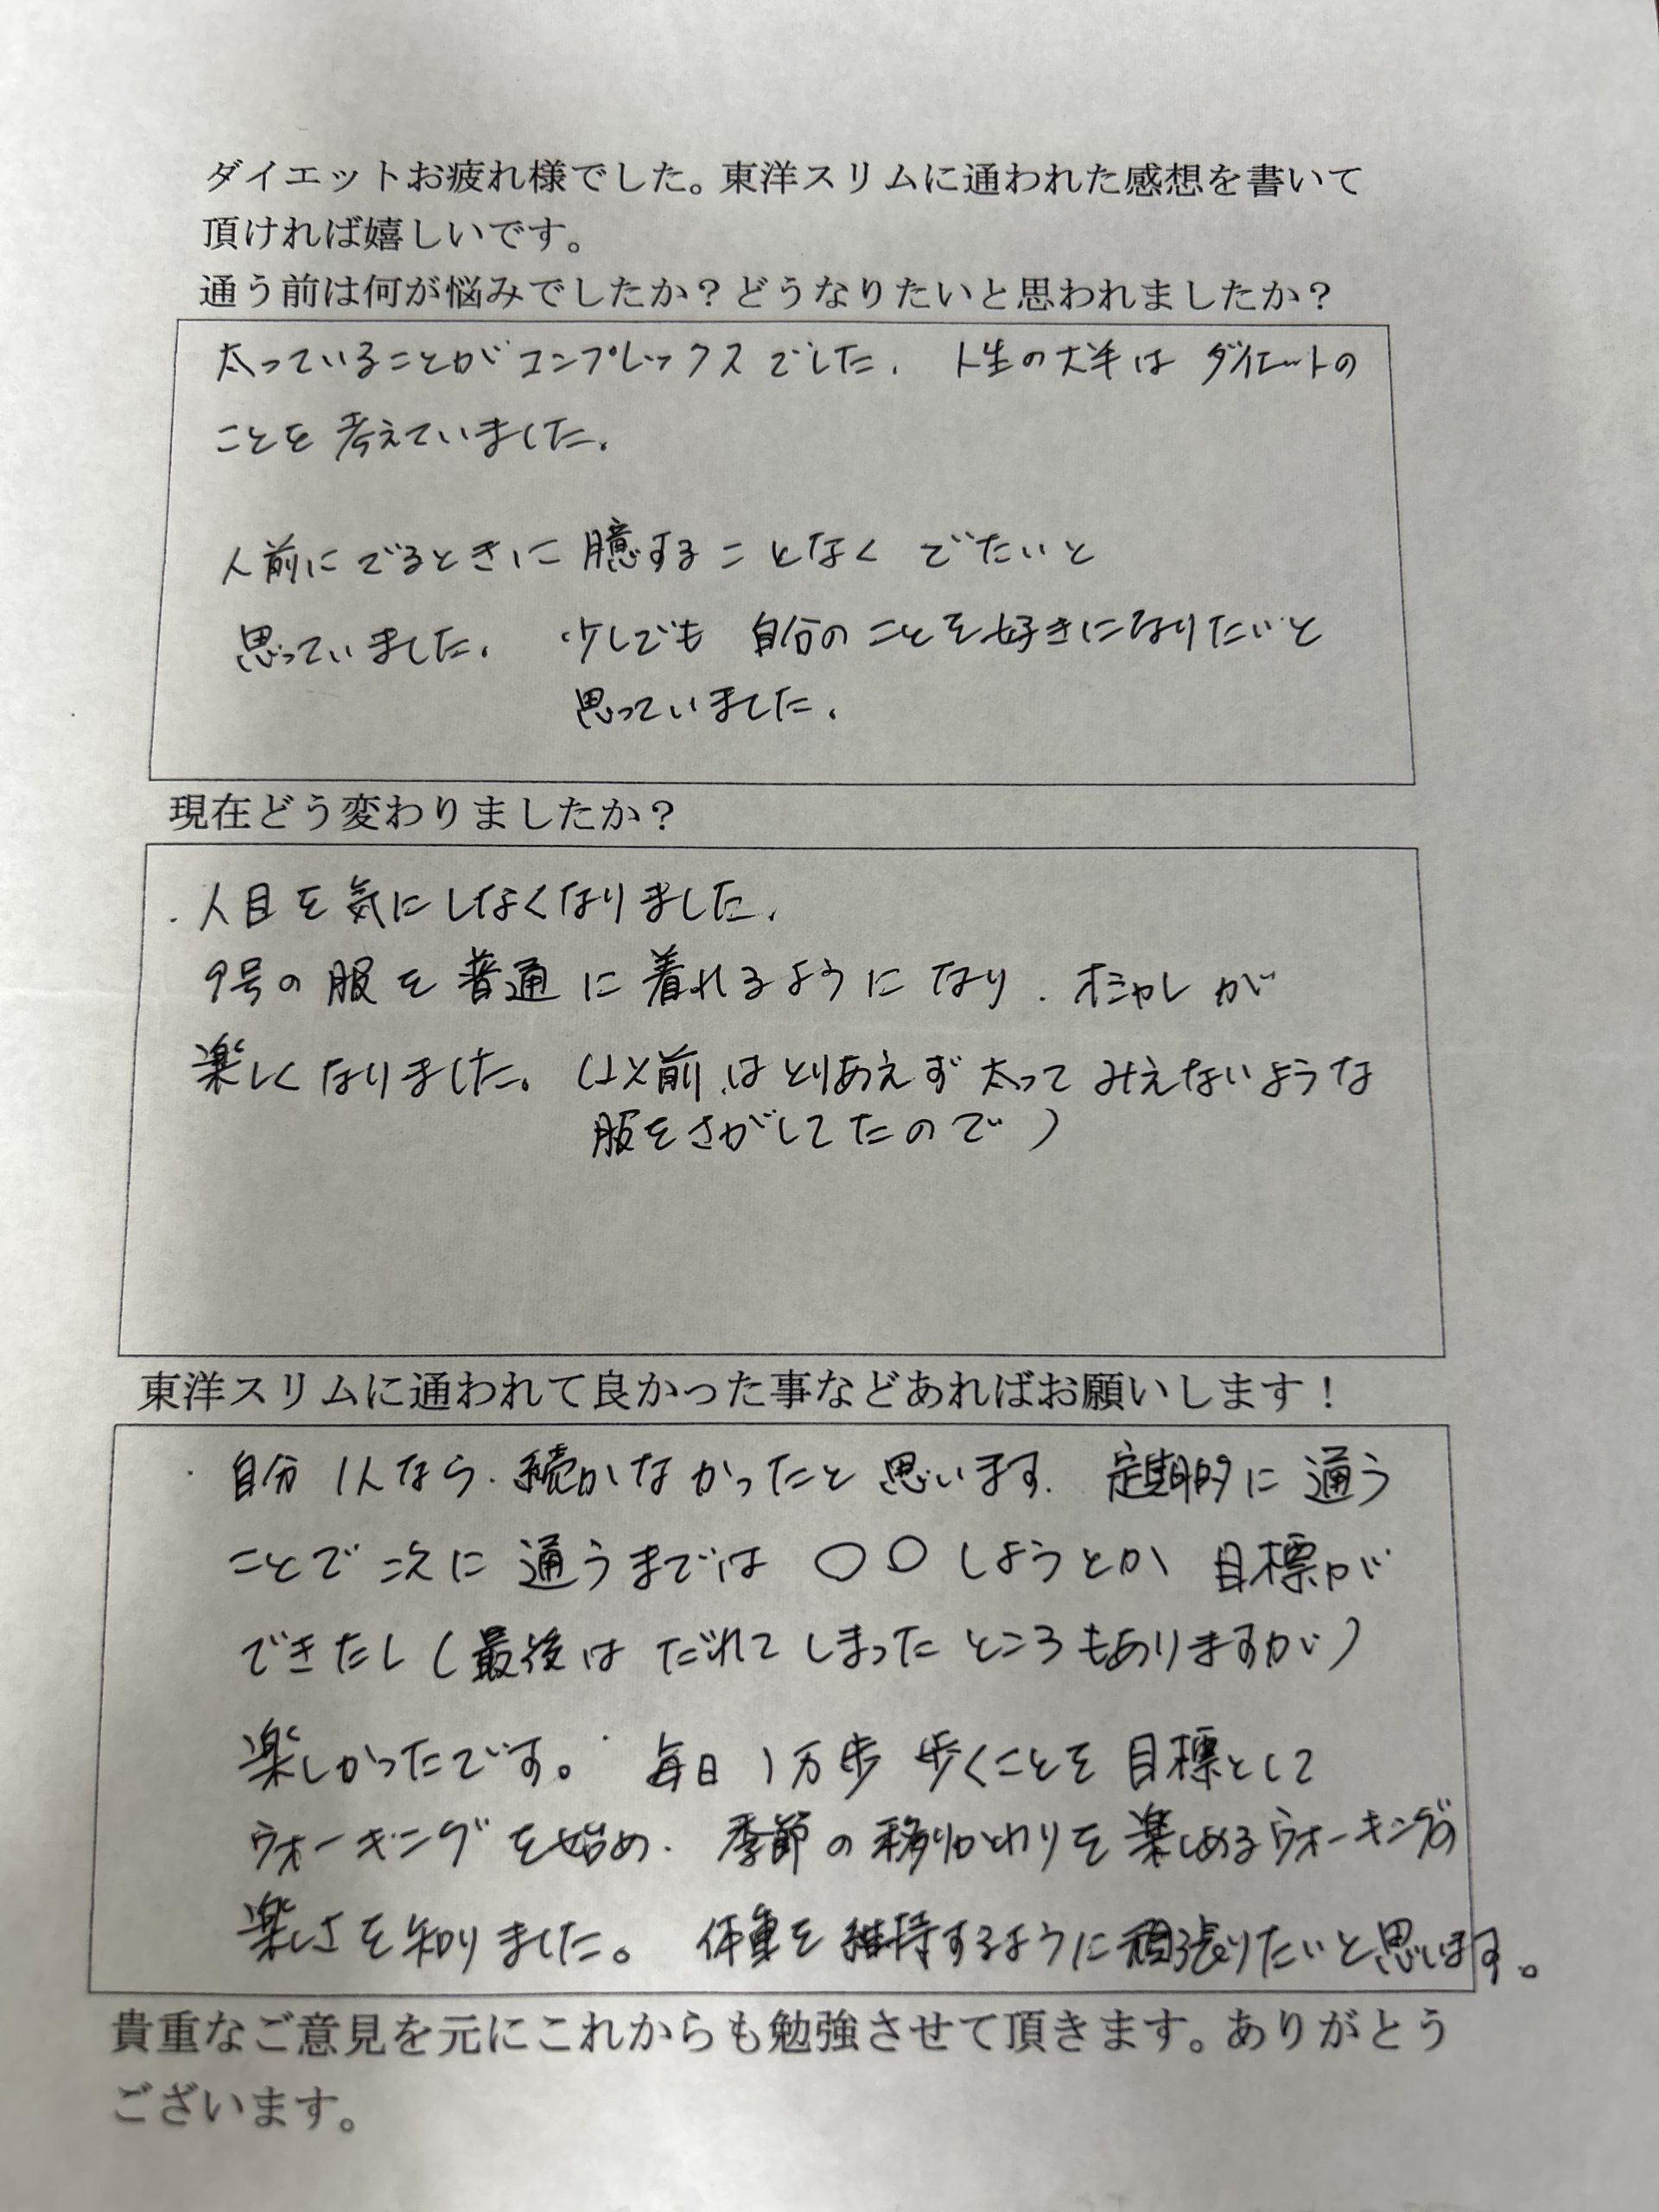 ダイエットお疲れ様でした。東洋スリムに通われた感想を書いて
頂ければ嬉しいです。
通う前は何が悩みでしたか？どうなりたいと思われましたか？
太っていることがコンプレックスでした。人生の大半はダイエットの
ことを考えていました。
人前にでるときに臆することなくでたいと
思っていました。少しでも自分のことを好きになりたいと
思っていました。
現在どう変わりましたか？
・人目を気にしなくなりました。
9号の服を普通に着れるようになり、オシャレが
楽しくなりました。（以前はとりあえず太ってみえないような
服をさがしてたので）
東洋スリムに通われて良かった事などあればお願いします！
・自分1人なら、続かなかったと思います。定期的に通う
ことで次に通うまでは〇〇しようとか目標が
できたし（最後はだれてしまったところもありますが）
楽しかったです。毎日1万歩歩くことを目標として
ウォーキングを始め、季節の移りかわりを楽しめるウォーキングの
楽しさを知りました。体重を維持するように頑張りたいと思います。
貴重なご意見を元にこれからも勉強させて頂きます。ありがとう
ございます。